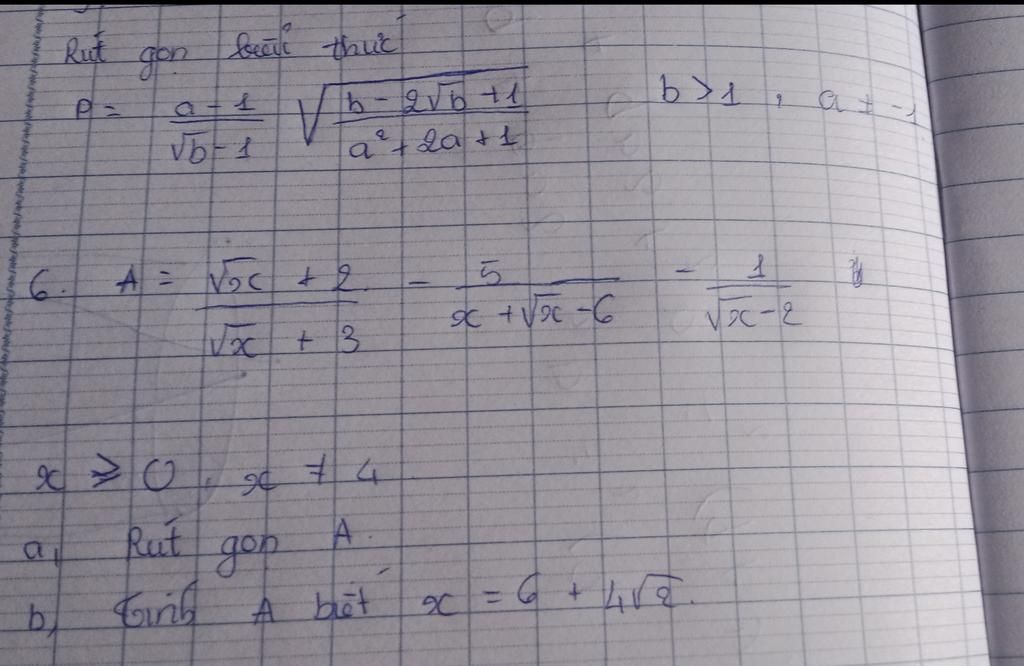 Rút gọn biểu thức
P = \frac{a-1}{\sqrt{b}-1} \sqrt{\frac{b-2\sqrt{b}+1}{a^2+2a+1}} b>1, a ≠ -1
6. A = \frac{\sqrt{x}+2}{\sqrt{x}+3} - \frac{5}{x+\sqrt{x}-6} - \frac{1}{\sqrt{x}-2}
x ≥ 0, x ≠ 4
a, Rút gọn A.
b, Tính A biết x = 6 + 4\sqrt{2}.